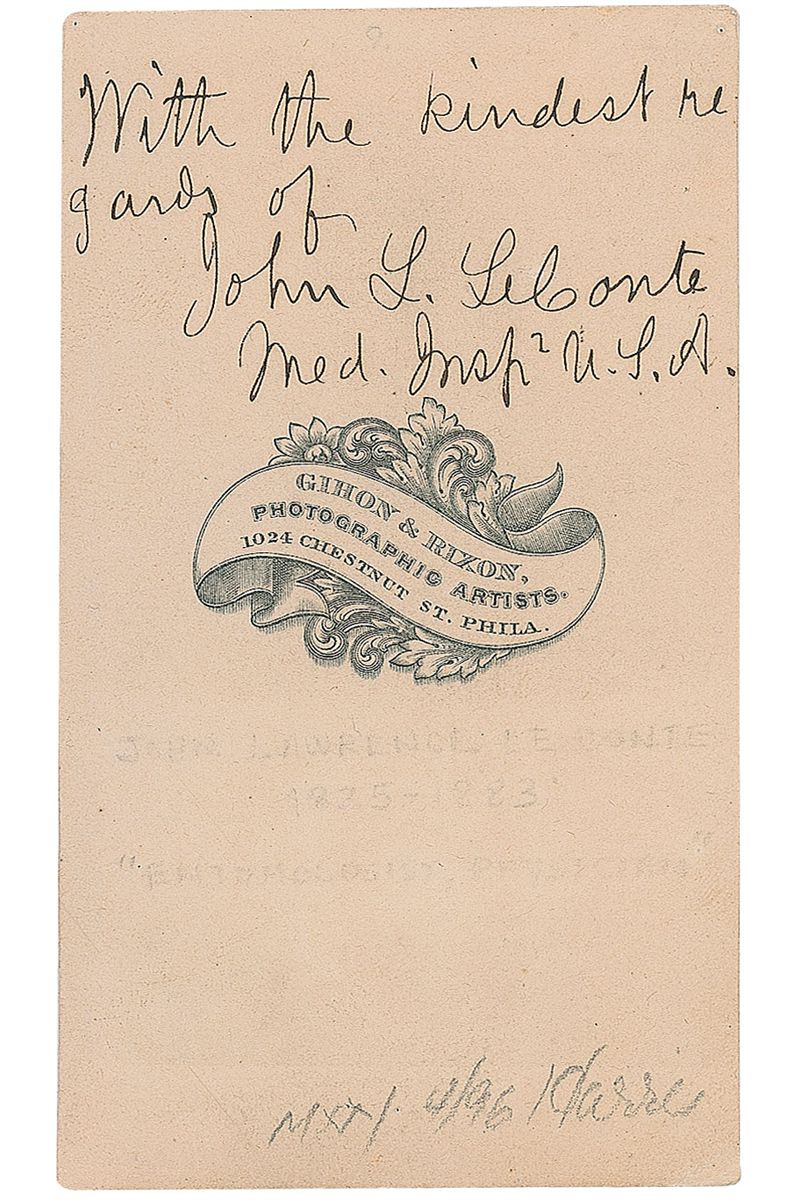 With the kindest re
gards of
John L. LeConte
Med. Inspr U.S.A.
GIHON & RIXON,
PHOTOGRAPHIC ARTISTS.
1024 CHESTNUT ST. PHILA.
JOHN LAWRENCE LE CONTE
1825-1883
"ENTOMOLOGIST, PHYSICIAN"
4/96